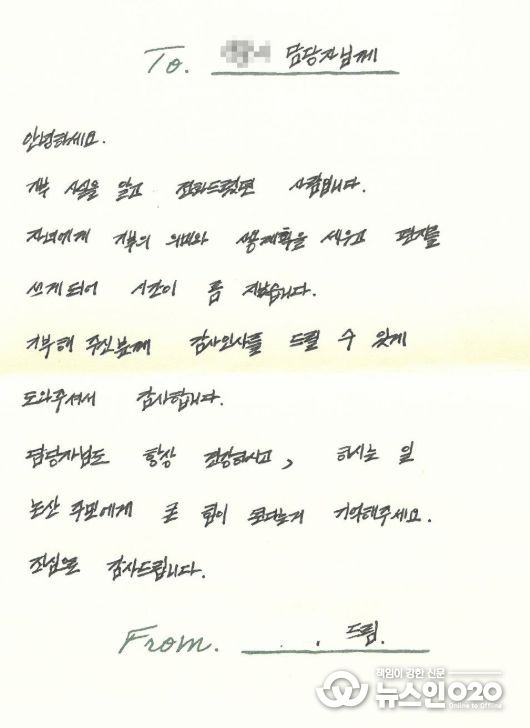 To. 담당자님께
안녕하세요.
기부 사실을 알고 전화드렸던 사람입니다.
자녀에게 기부의 의미와 사용계획을 세우고 편지를
쓰게되어 시간이 좀 지났습니다.
기부해 주신분께 감사인사를 드릴 수 있게
도와주셔서 감사합니다.
담당자님도 항상 건강하시고, 하시는 일
논산 주민에게 큰 힘이 된다는거 기억해주세요.
진심으로 감사드립니다.
From. . . 드림.
책임이 강한 신문
뉴스인020
Online to Offline